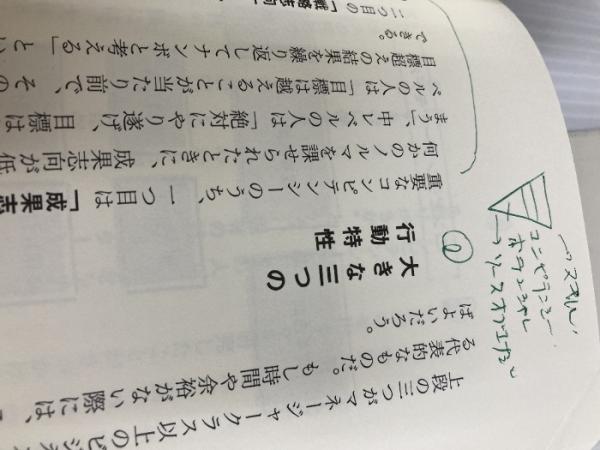 上段の三つがマネージャークラス以上のビジネ
る代表的なものだ。もし時間や余裕がない際には、
ばよいだろう。
大きな三つの
行動特性
重要なコンピテンシーのうち、一つ目は「成果志
何かのノルマを課せられたときに、成果志向が低
まう」、中レベルの人は「絶対にやり遂げ、目標は
ベルの人は「目標は越えることが当たり前で、その
目標超えの結果を繰り返してナンボと考える」とい
できる。
二つ目の「戦略志向
スキル
コンピテンシー
ポテンシャル
ソースオブエナジー